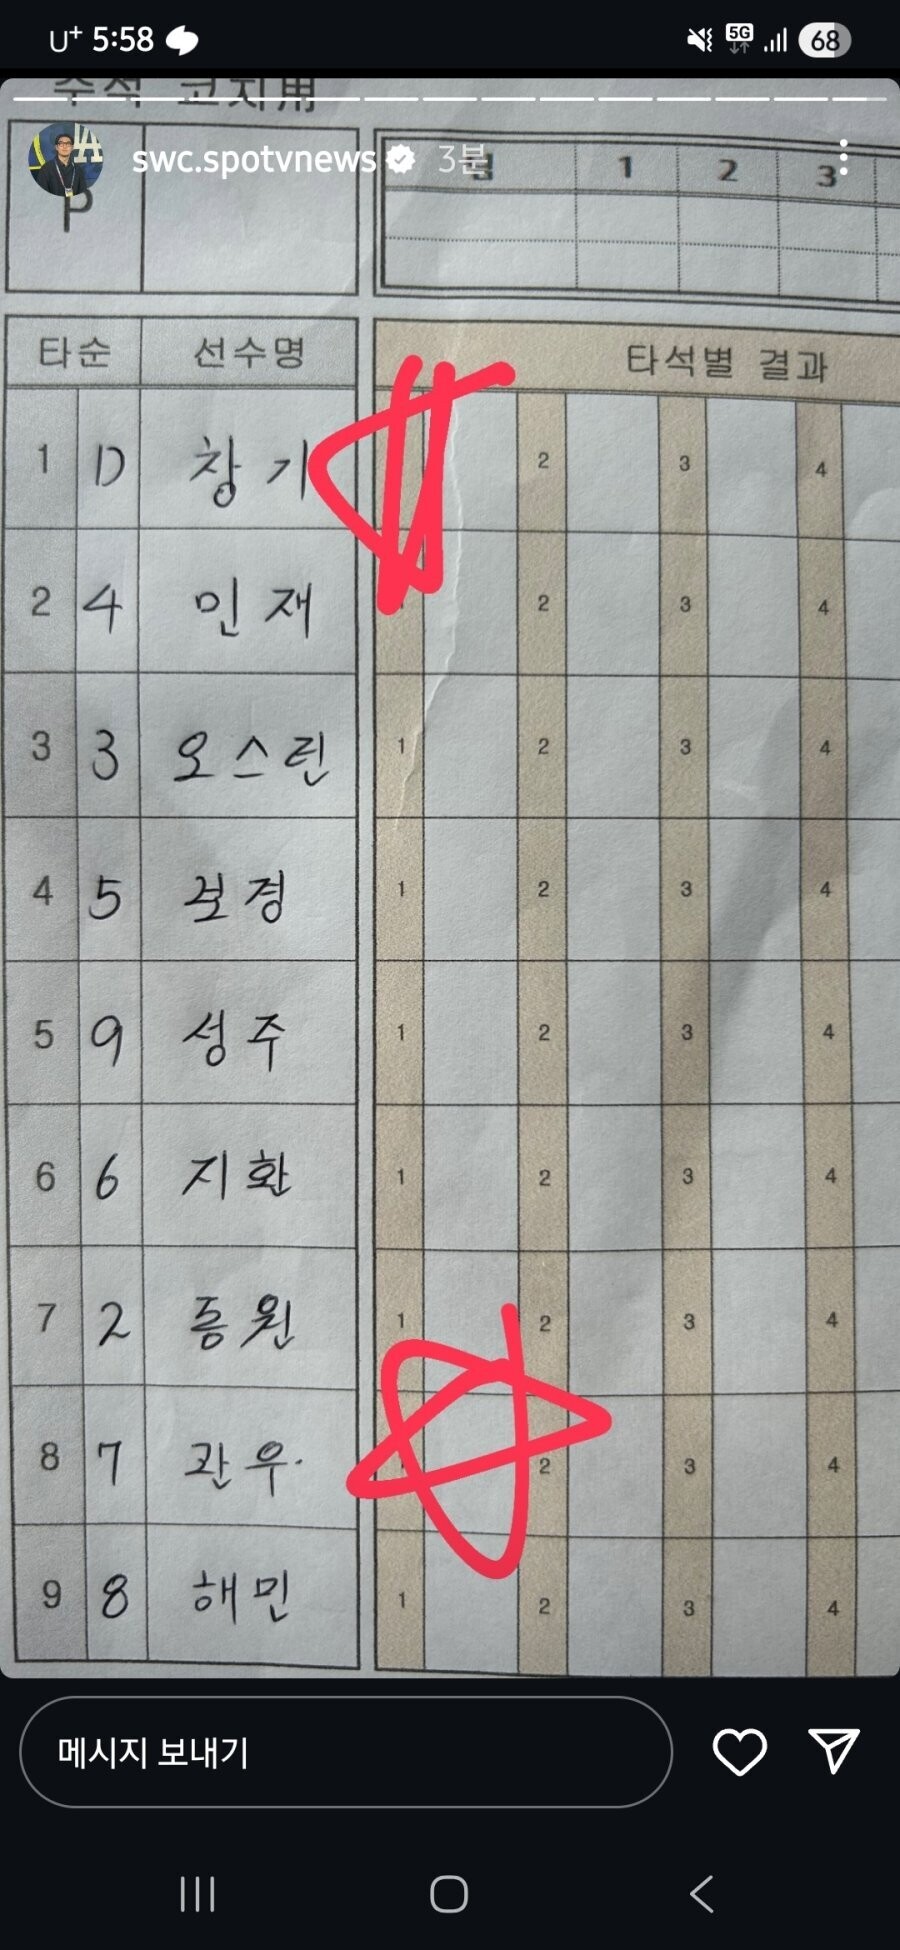 U+ 5:58 5G 68
수석 코치用
swc.spotvnews 3분
P
팀 1 2 3
타순 선수명 타석별 결과
1 D 창기 2 3 4
2 4 민재 1 2 3 4
3 3 오스틴 1 2 3 4
4 5 보경 1 2 3 4
5 9 성주 1 2 3 4
6 6 지환 1 2 3 4
7 2 동원 1 2 3 4
8 7 관우. 2 3 4
9 8 해민 1 2 3 4
메시지 보내기